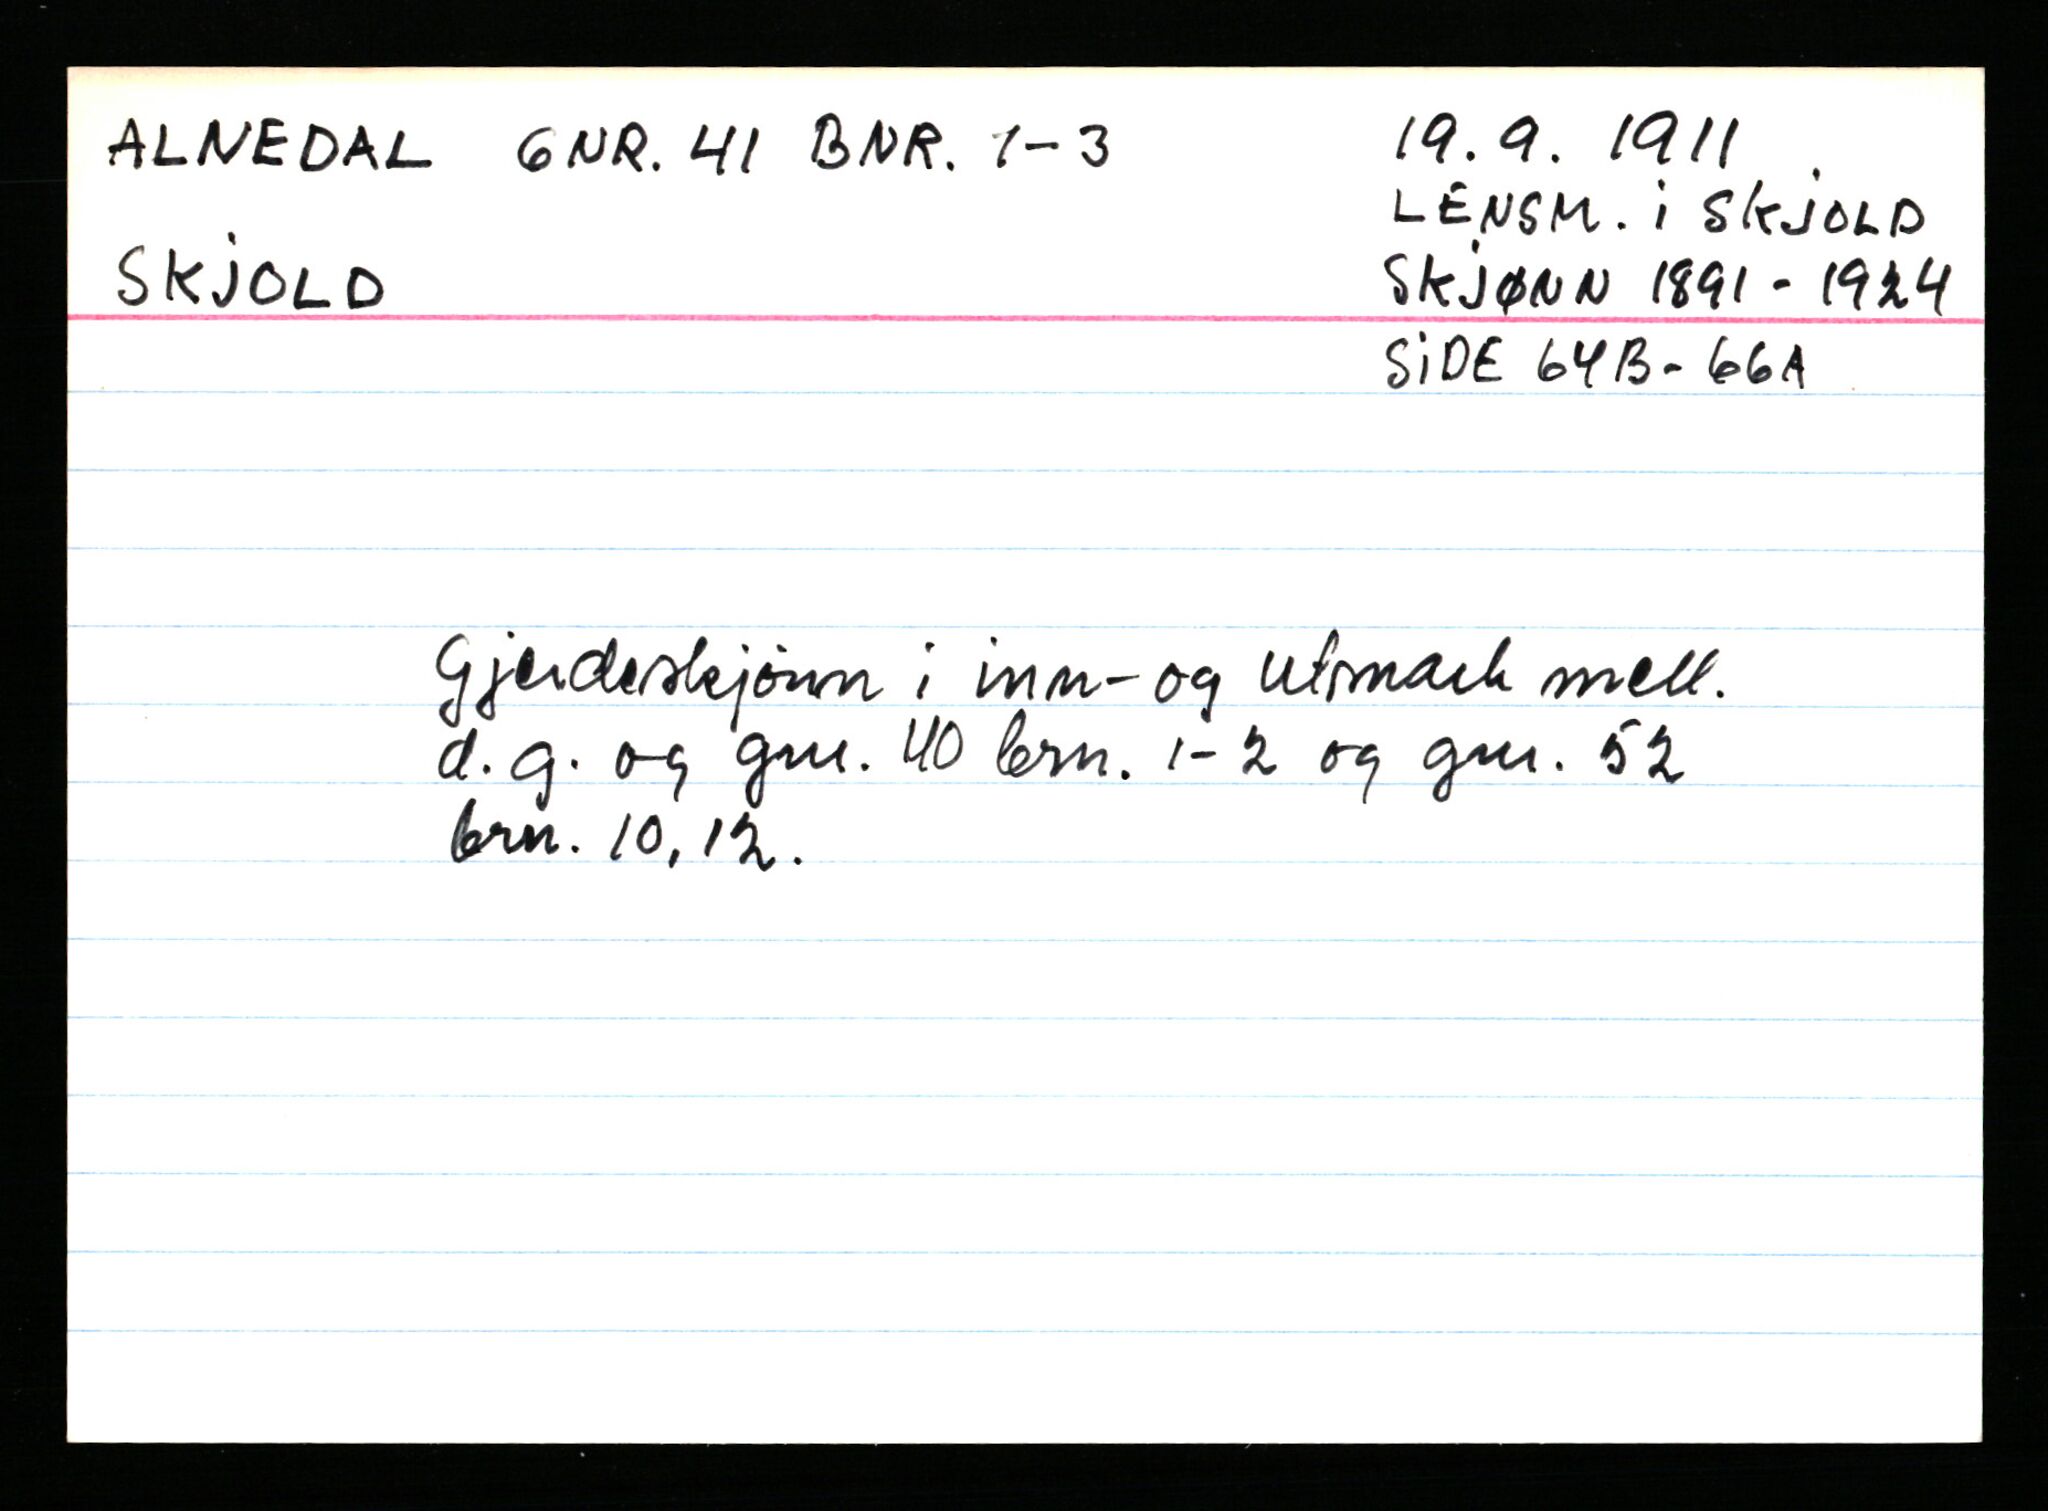 ALNEDAL GNR. 41 BNR. 1-3
SKJOLD
19.9.1911
LENSM. i SKJOLD
SKJØNN 1891-1924
SIDE 64B-66A
Gjerdeskjønn i inn- og utmark mell.
d.g. og gnr. 40 brn. 1-2 og gnr. 52
brn. 10, 12.